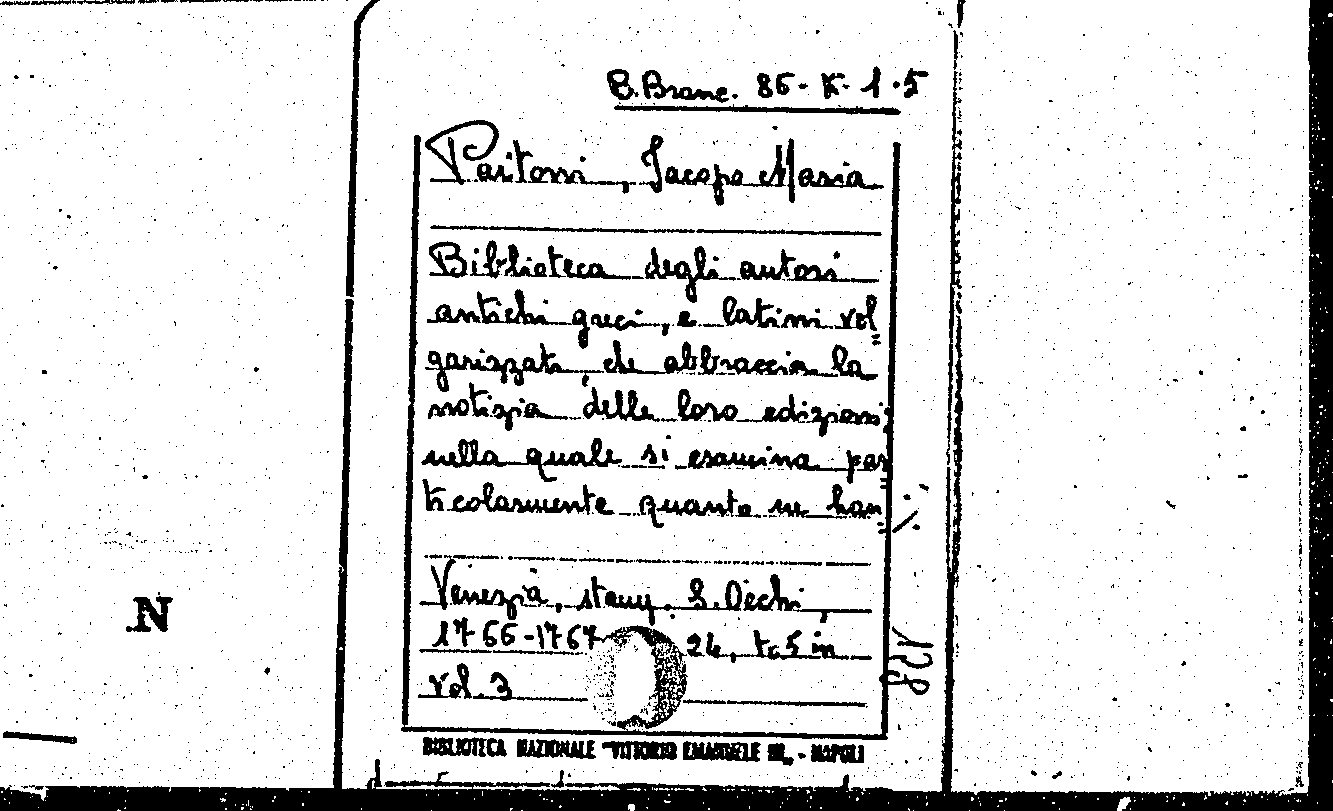 B. Branc. 86- K- 1 · 5
Paitoni, Jacopo Maria
Biblioteca degli autori
antichi greci, e latini vol=
garizzati, che abbraccia la
notizia delle loro edizioni:
nella quale si esamina par=
ticolarmente quanto ne han=
Venezia, stamp. S. Occhi,
1766-1767 24, t. 5 in
vol. 3
BIBLIOTECA NAZIONALE "VITTORIO EMANUELE III" - NAPOLI
N
128